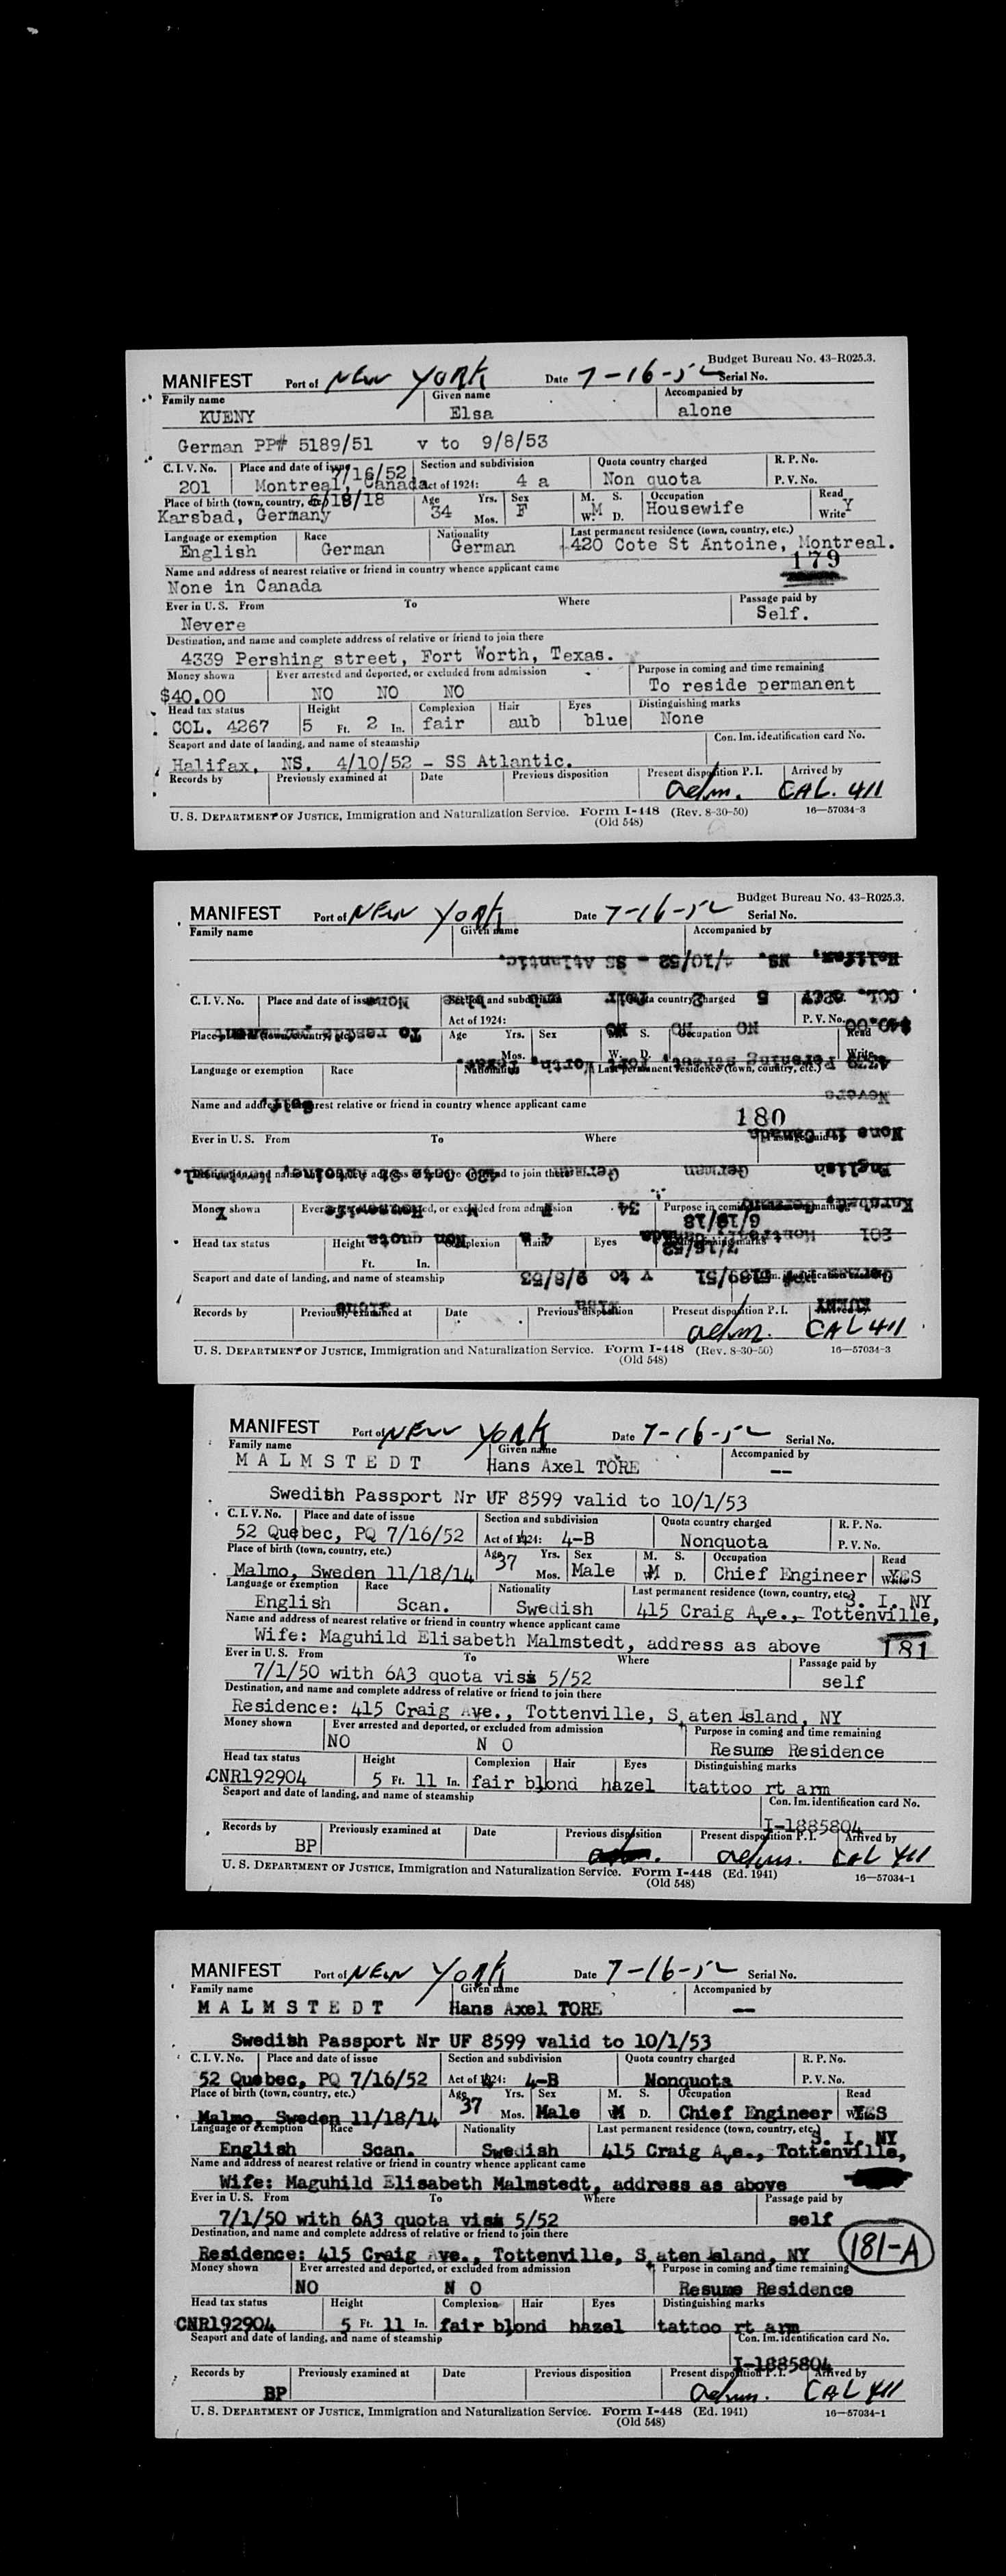 Budget Bureau No. 43-R025.3.
MANIFEST Port of NEW YORK Date 7-16-52 Serial No.
Family name Given name Accompanied by
KUENY Elsa alone
German PP# 5189/51 v to 9/8/53
C. I. V. No. Place and date of issue Section and subdivision Quota country charged R. P. No.
7/16/52
201 Montreal, Canada Act of 1924: 4 a Non quota P. V. No.
Place of birth (town, country, etc.) 6/18/18 Age Yrs. Sex M. S. Occupation Read
Karsbad, Germany 34 Mos. F W. M D. Housewife Write Y
Language or exemption Race Nationality Last permanent residence (town, country, etc.)
English German German 420 Cote St Antoine, Montreal.
Name and address of nearest relative or friend in country whence applicant came 179
None in Canada
Ever in U. S. From To Where Passage paid by
Nevere Self.
Destination, and name and complete address of relative or friend to join there
4339 Pershing street, Fort Worth, Texas.
Money shown Ever arrested and deported, or excluded from admission Purpose in coming and time remaining
$40.00 NO NO NO To reside permanent
Head tax status Height Complexion Hair Eyes Distinguishing marks
COL. 4267 5 Ft. 2 In. fair aub blue None
Seaport and date of landing, and name of steamship Con. Im. identification card No.
Halifax, NS. 4/10/52 - SS Atlantic.
Records by Previously examined at Date Previous disposition Present disposition P. I. Arrived by
adm. CAL. 411
U. S. DEPARTMENT OF JUSTICE, Immigration and Naturalization Service. Form I-448 (Rev. 8-30-50) 16—57034-3
(Old 548)
Budget Bureau No. 43-R025.3.
MANIFEST Port of NEW YORK Date 7-16-52 Serial No.
Family name Given name Accompanied by
Halifax, NS. 4/10/52 - SS Atlantic.
C. I. V. No. Place and date of issue Section and subdivision Quota country charged
Act of 1924: P. V. No.
Place of birth (town, country, etc.) Age Yrs. Sex M. S. Occupation Read
Mos. W. D. Write
Language or exemption Race Nationality Last permanent residence (town, country, etc.)
Name and address of nearest relative or friend in country whence applicant came
180
Ever in U. S. From To Where
Destination, and name and complete address of relative or friend to join there
Money shown Ever arrested and deported, or excluded from admission Purpose in coming and time remaining
Head tax status Height Complexion Hair Eyes
Ft. In.
Seaport and date of landing, and name of steamship
Records by Previously examined at Date Previous disposition Present disposition P. I.
adm. CAL 411
U. S. DEPARTMENT OF JUSTICE, Immigration and Naturalization Service. Form I-448 (Rev. 8-30-50) 16—57034-3
(Old 548)
MANIFEST Port of NEW YORK Date 7-16-52 Serial No.
Family name Given name Accompanied by
MALMSTEDT Hans Axel TORE --
Swedish Passport Nr UF 8599 valid to 10/1/53
C. I. V. No. Place and date of issue Section and subdivision Quota country charged R. P. No.
52 Quebec, PQ 7/16/52 Act of 1924: 4-B Nonquota P. V. No.
Place of birth (town, country, etc.) Age Yrs. Sex M. S. Occupation Read
Malmo, Sweden 11/18/14 37 Mos. Male W. M D. Chief Engineer Write YES
Language or exemption Race Nationality Last permanent residence (town, country, etc.) S. I. NY
English Scan. Swedish 415 Craig Ave., Tottenville,
Name and address of nearest relative or friend in country whence applicant came
Wife: Maguhild Elisabeth Malmstedt, address as above 181
Ever in U. S. From To Where Passage paid by
7/1/50 with 6A3 quota visa 5/52 self
Destination, and name and complete address of relative or friend to join there
Residence: 415 Craig Ave., Tottenville, S aten Island, NY
Money shown Ever arrested and deported, or excluded from admission Purpose in coming and time remaining
NO N O Resume Residence
Head tax status Height Complexion Hair Eyes Distinguishing marks
CNR192904 5 Ft. 11 In. fair blond hazel tattoo rt arm
Seaport and date of landing, and name of steamship Con. Im. identification card No.
I-1885804
Records by Previously examined at Date Previous disposition Present disposition P. I. Arrived by
BP adm. CAL 411
U. S. DEPARTMENT OF JUSTICE, Immigration and Naturalization Service. Form I-448 (Ed. 1941) 16—57034-1
(Old 548)
MANIFEST Port of NEW YORK Date 7-16-52 Serial No.
Family name Given name Accompanied by
MALMSTEDT Hans Axel TORE --
Swedish Passport Nr UF 8599 valid to 10/1/53
C. I. V. No. Place and date of issue Section and subdivision Quota country charged R. P. No.
52 Quebec, PQ 7/16/52 Act of 1924: 4-B Nonquota P. V. No.
Place of birth (town, country, etc.) Age Yrs. Sex M. S. Occupation Read
Malmo, Sweden 11/18/14 37 Mos. Male M D. Chief Engineer YES
Language or exemption Race Nationality Last permanent residence (town, country, etc.) S. I. NY
English Scan. Swedish 415 Craig Ave., Tottenville,
Name and address of nearest relative or friend in country whence applicant came
Wife: Maguhild Elisabeth Malmstedt, address as above
Ever in U. S. From To Where Passage paid by
7/1/50 with 6A3 quota visa 5/52 self
Destination, and name and complete address of relative or friend to join there
Residence: 415 Craig Ave., Tottenville, S aten Island, NY 181-A
Money shown Ever arrested and deported, or excluded from admission Purpose in coming and time remaining
NO N O Resume Residence
Head tax status Height Complexion Hair Eyes Distinguishing marks
CNR192904 5 Ft. 11 In. fair blond hazel tattoo rt arm
Seaport and date of landing, and name of steamship Con. Im. identification card No.
I-1885804
Records by Previously examined at Date Previous disposition Present disposition P. I. Arrived by
BP adm. CAL 411
U. S. DEPARTMENT OF JUSTICE, Immigration and Naturalization Service. Form I-448 (Ed. 1941) 16—57034-1
(Old 548)